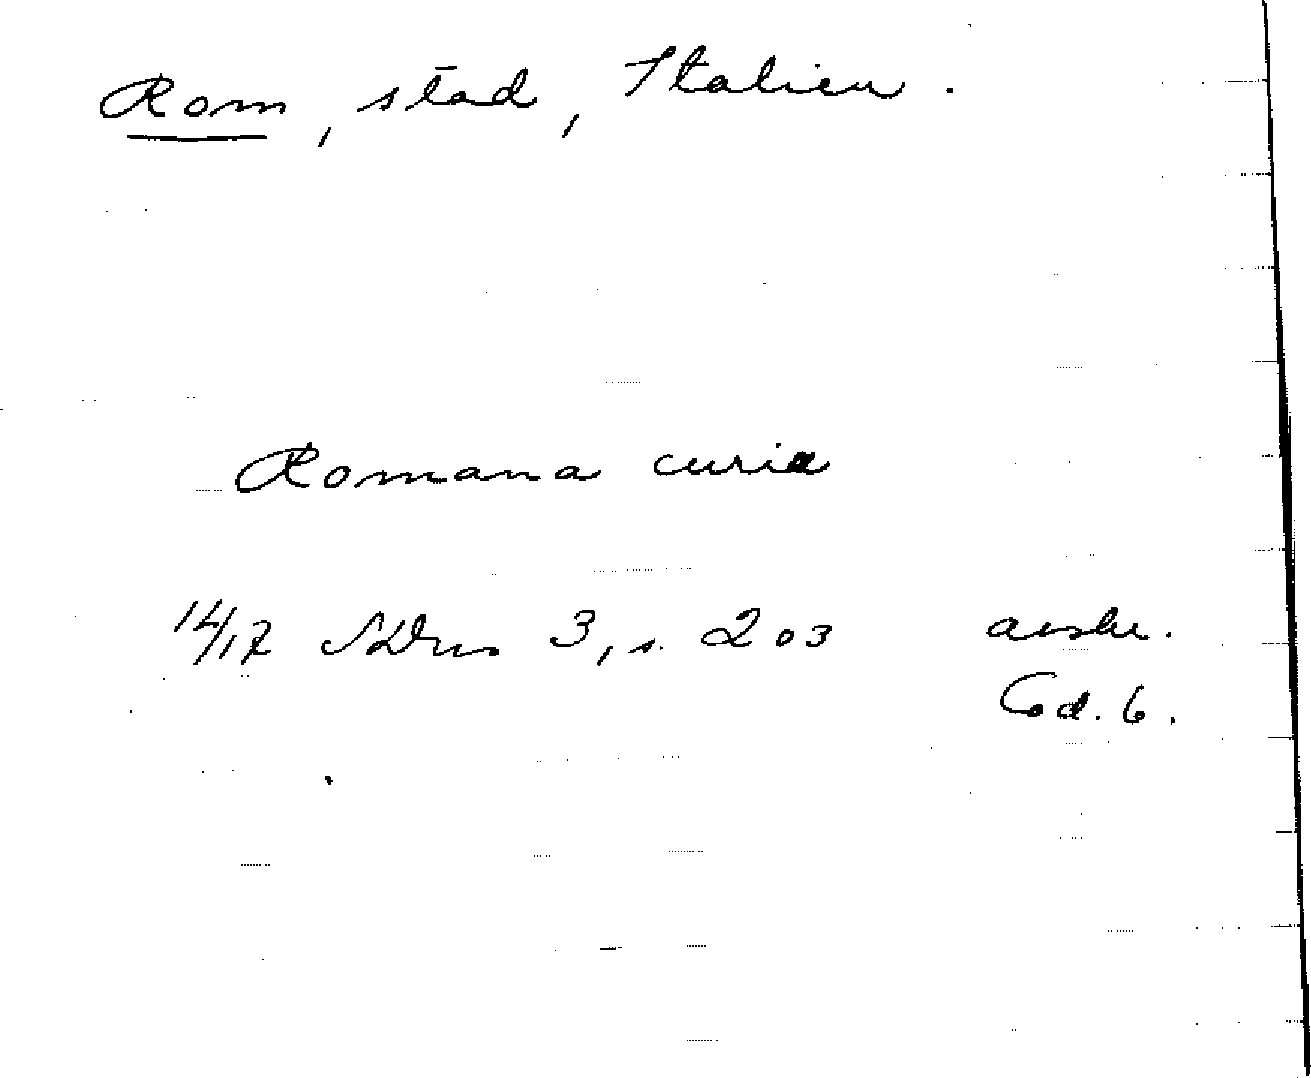 Rom, stad, Italien.
Romana curia
14/17 SDns 3, s. 203 avskr.
Cod. 6.